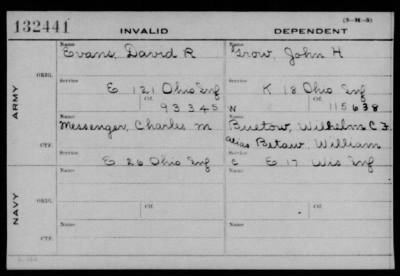 (3-H-5)
132441 INVALID DEPENDENT
Name Name
Evans, David R Grow, John H
ORIG.
Service Service
E 121 Ohio Inf K 18 Ohio Inf
Ctf. Ctf.
93345 W 115638
ARMY
Name Name
Messenger, Charles M Buetow, Wilhelm C F
alias Betaw, William
CTF.
Service Service
E 26 Ohio Inf C E 17 Wis Inf
Name Name
ORIG.
Service Ctf. Service Ctf.
NAVY
Name Name
CTF.
Service Service